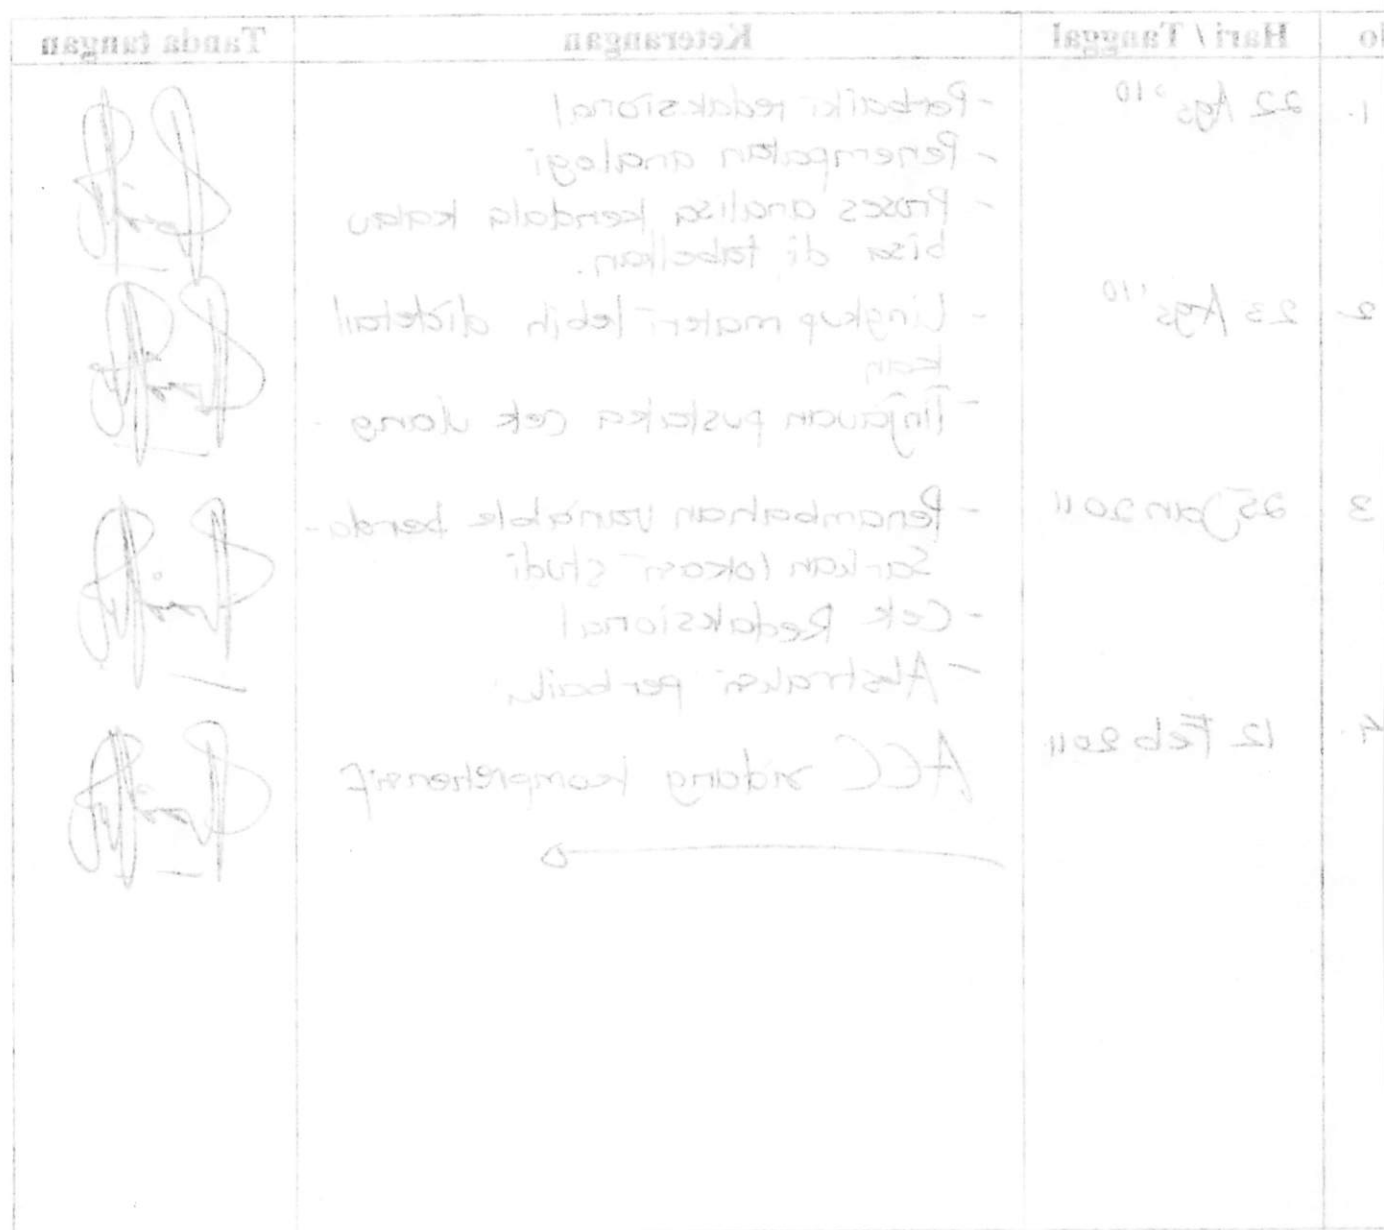 No Hari / Tanggal Keterangan Tanda tangan
1. 22 Ags '10 - Perbaiki redaksional
- Penempatan analogi
- Proses analisa kendala kalau
bisa di tabelkan.
2 23 Ags '10 - Lingkup materi lebih didetail
kan
- Tinjauan pustaka cek ulang.
3 25 Jan 2011 - Penambahan variable berda-
sarkan lokasi studi
- Cek Redaksional
- Abstraksi perbaiki
4. 12 Feb 2011 ACC sidang komprehensif